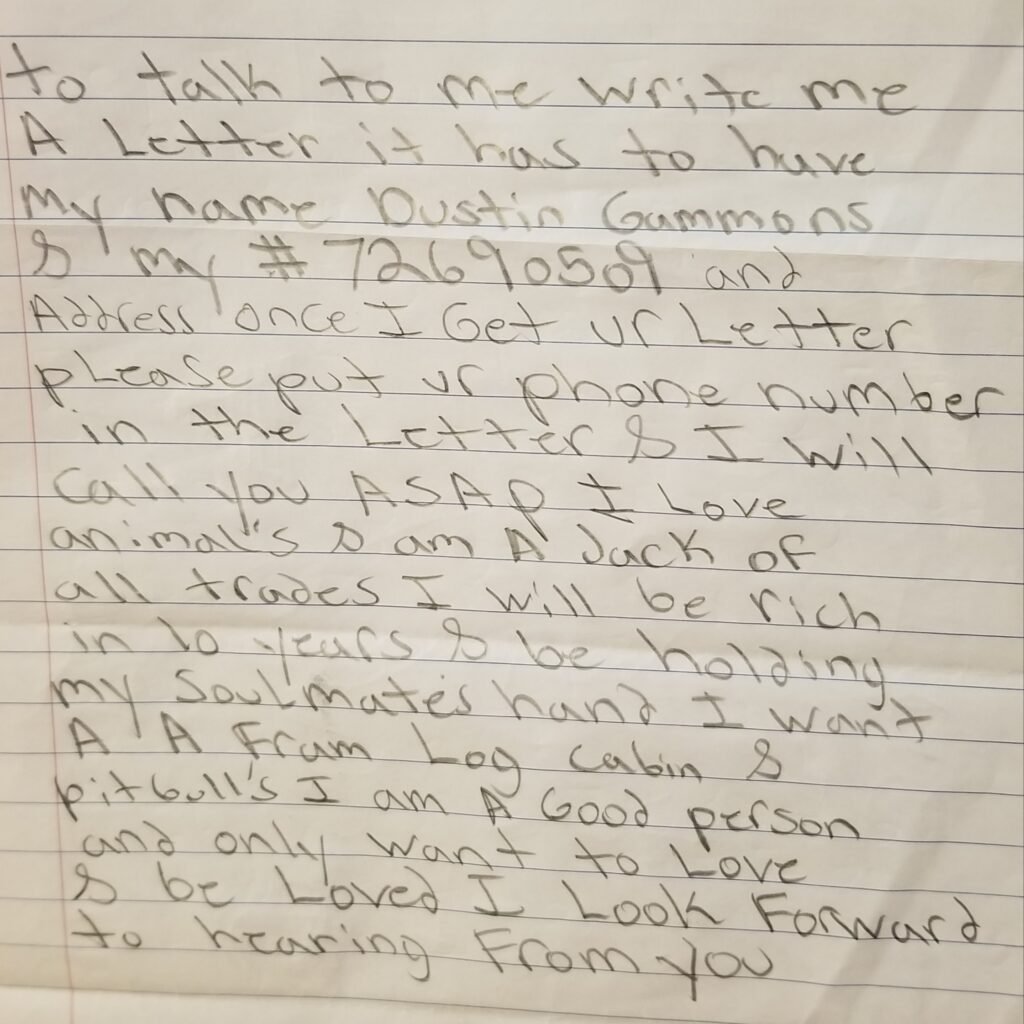 to talk to me write me
A Letter it has to have
my name Dustin Gammons
& my # 72690509 and
Address once I Get ur Letter
please put ur phone number
in the Letter & I will
call you ASAP I Love
animal's & am A Jack of
all trades I will be rich
in 10 years & be holding
my Soulmate's hand I want
A A Fram Log cabin &
pitbull's I am A Good person
and only want to Love
& be Loved I Look Forward
to hearing From you